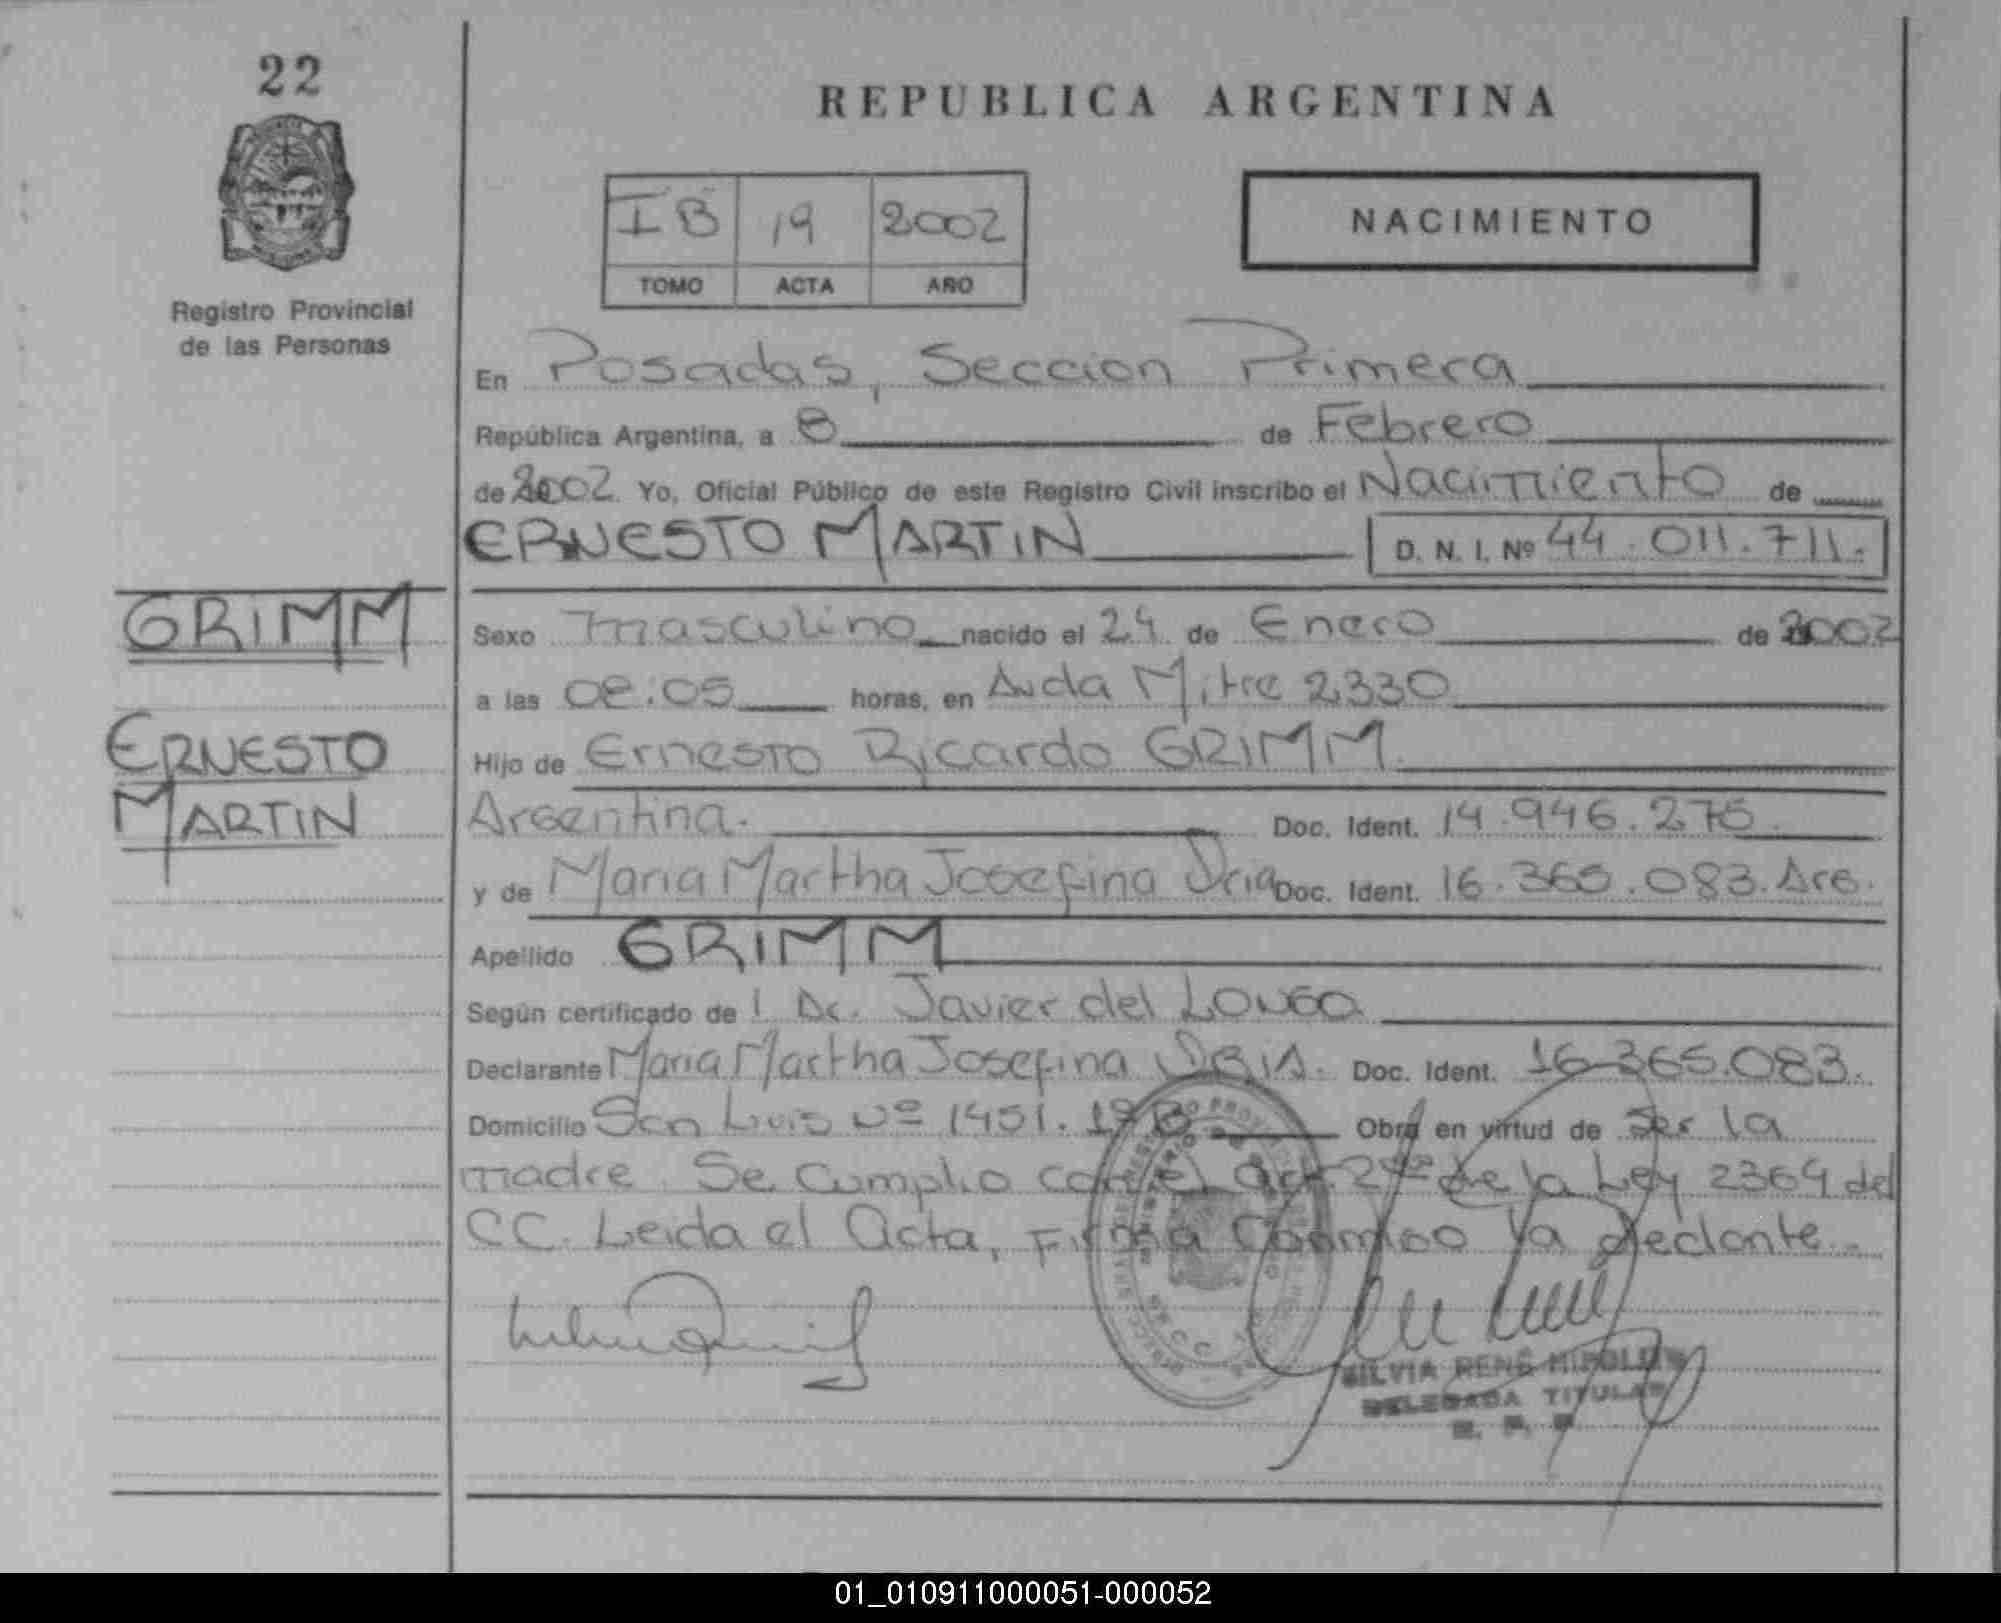 22
REPUBLICA ARGENTINA
Registro Provincial
de las Personas
IB 19 2002
TOMO ACTA AÑO
NACIMIENTO
En Posadas, Seccion Primera
República Argentina, a 8 de Febrero
de 2002 Yo, Oficial Público de este Registro Civil inscribo el Nacimiento de
ERNESTO MARTIN D. N. I. Nº 44.011.711.
GRIMM
ERNESTO
MARTIN
Sexo masculino nacido el 24 de Enero de 2002
a las 08:05 horas, en Avda Mitre 2330
Hijo de Ernesto Ricardo GRIMM.
Argentina. Doc. Ident. 14.946.275.
y de Maria Martha Josefina Doc. Ident. 16.365.083. Arg.
Apellido GRIMM
Según certificado de l Dr. Javier del LONGO
Declarante Maria Martha Josefina Doc. Ident. 16.365.083.
Domicilio San Luis Nº 1451. Obra en virtud de Ser la
madre. Se Cumplio con el de la Ley 2364 del
CC. Leida el Acta, Firma Conmigo la
SILVIA RENÉ
DELEGADA TITULAR
01_010911000051-000052